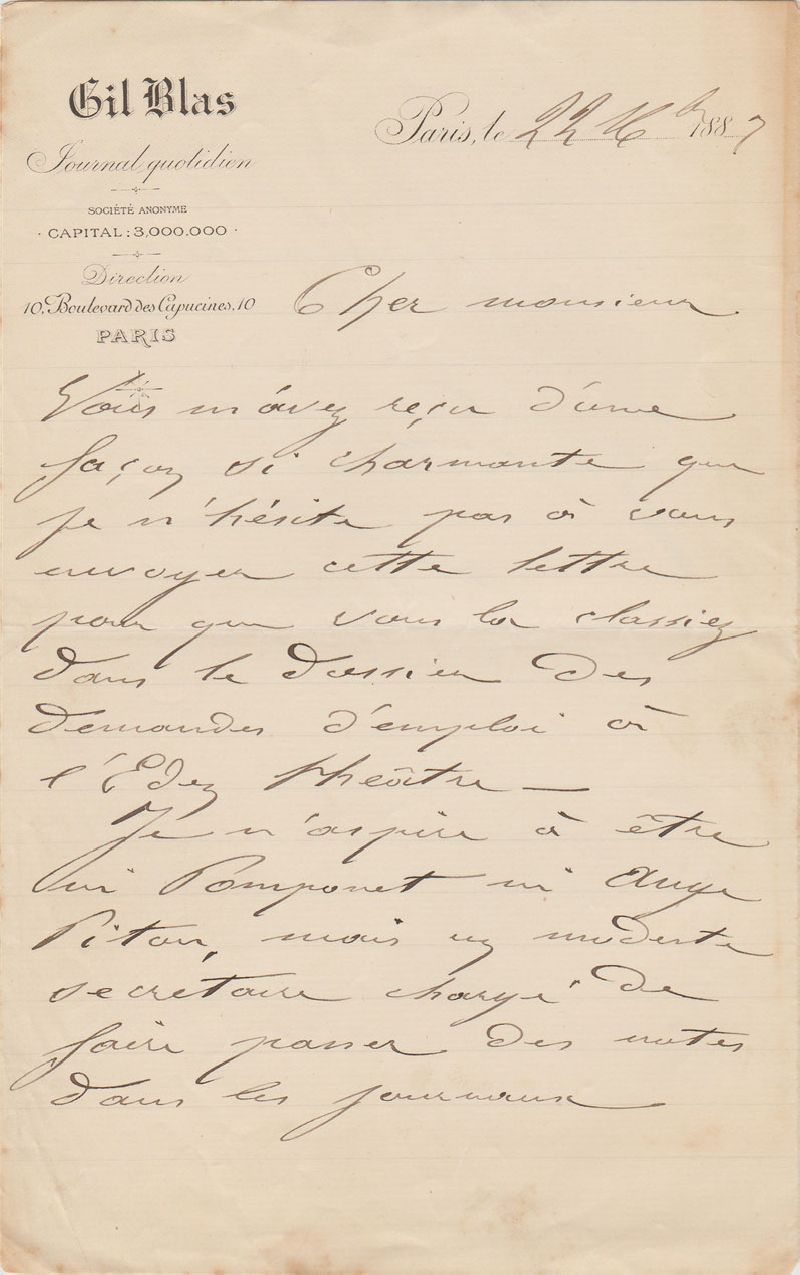 Gil Blas
Journal quotidien
SOCIÉTÉ ANONYME
· CAPITAL : 3,000.000 ·
Direction
10, Boulevard des Capucines, 10
PARIS
Paris, le 22 Xbre 1887
Cher monsieur
Vous m'avez reçu d'une
façon si charmante que
je n'hésite pas à vous
envoyer cette lettre
pour que vous la classiez
dans le dossier des
demandes d'emploi à
l'Eden théâtre —
Je n'aspire à être
ni Pomponet ni Ange
Pitou, mais un modeste
secrétaire chargé de
faire passer des notes
dans les journaux